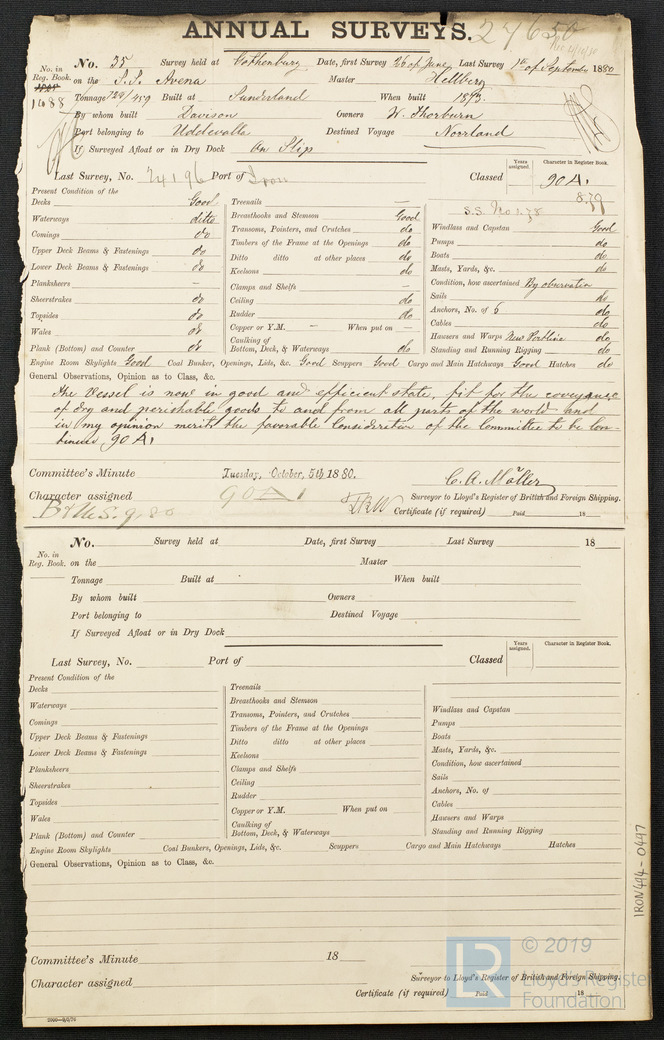 ANNUAL SURVEYS. 27650
No. in Reg. Book. No. 35 Survey held at Gothenburg Date, first Survey 26 of June Last Survey 1st of September 1880
on the S.S. Avena Master Hellberg
1088 Tonnage 724/459 Built at Sunderland When built 1873.
By whom built Davison Owners W. Thorburn
Port belonging to Uddevalla Destined Voyage Norrland
If Surveyed Afloat or in Dry Dock On Slip
Years assigned. Character in Register Book.
Last Survey, No. 24196 Port of Iron Classed 90A1
8.79
S.S. No 1.78
Present Condition of the
Decks Good
Waterways ditto
Comings do
Upper Deck Beams & Fastenings do
Lower Deck Beams & Fastenings do
Planksheers —
Sheerstrakes do
Topsides do
Wales do
Plank (Bottom) and Counter do
Treenails —
Breasthooks and Stemson Good
Transoms, Pointers, and Crutches do
Timbers of the Frame at the Openings do
Ditto ditto at other places do
Keelsons do
Clamps and Shelfs —
Ceiling do
Rudder do
Copper or Y.M. — When put on —
Caulking of
Bottom, Deck, & Waterways do
Windlass and Capstan Good
Pumps do
Boats do
Masts, Yards, &c. do
Condition, how ascertained By observation
Sails do
Anchors, No. of 6 do
Cables do
Hawsers and Warps New Portline do
Standing and Running Rigging do
Engine Room Skylights Good Coal Bunker, Openings, Lids, &c. Good Scuppers Good Cargo and Main Hatchways Good Hatches do
General Observations, Opinion as to Class, &c.
The Vessel is now in good and efficient state, fit for the coveyance
of dry and perishable goods to and from all parts of the world and
in my opinion merits the favorable Consideration of the Committee to be Con-
tinued 90 A1
Committee's Minute Tuesday, October, 5th 1880.
C. A. Möller
Character assigned 90A1
Surveyor to Lloyd's Register of British and Foreign Shipping.
B&MS. 9.80
Certificate (if required) Paid 18
No. in Reg. Book. No. Survey held at Date, first Survey Last Survey 18
on the Master
Tonnage Built at When built
By whom built Owners
Port belonging to Destined Voyage
If Surveyed Afloat or in Dry Dock
Years assigned. Character in Register Book.
Last Survey, No. Port of Classed
Present Condition of the
Decks
Waterways
Comings
Upper Deck Beams & Fastenings
Lower Deck Beams & Fastenings
Planksheers
Sheerstrakes
Topsides
Wales
Plank (Bottom) and Counter
Treenails
Breasthooks and Stemson
Transoms, Pointers, and Crutches
Timbers of the Frame at the Openings
Ditto ditto at other places
Keelsons
Clamps and Shelfs
Ceiling
Rudder
Copper or Y.M. When put on
Caulking of
Bottom, Deck, & Waterways
Windlass and Capstan
Pumps
Boats
Masts, Yards, &c.
Condition, how ascertained
Sails
Anchors, No. of
Cables
Hawsers and Warps
Standing and Running Rigging
Engine Room Skylights Coal Bunkers, Openings, Lids, &c. Scuppers Cargo and Main Hatchways Hatches
General Observations, Opinion as to Class, &c.
Committee's Minute 18
Character assigned
Surveyor to Lloyd's Register of British and Foreign Shipping.
Certificate (if required) Paid 18
IRON494-0497
LR © 2019
Lloyd's Register
Foundation